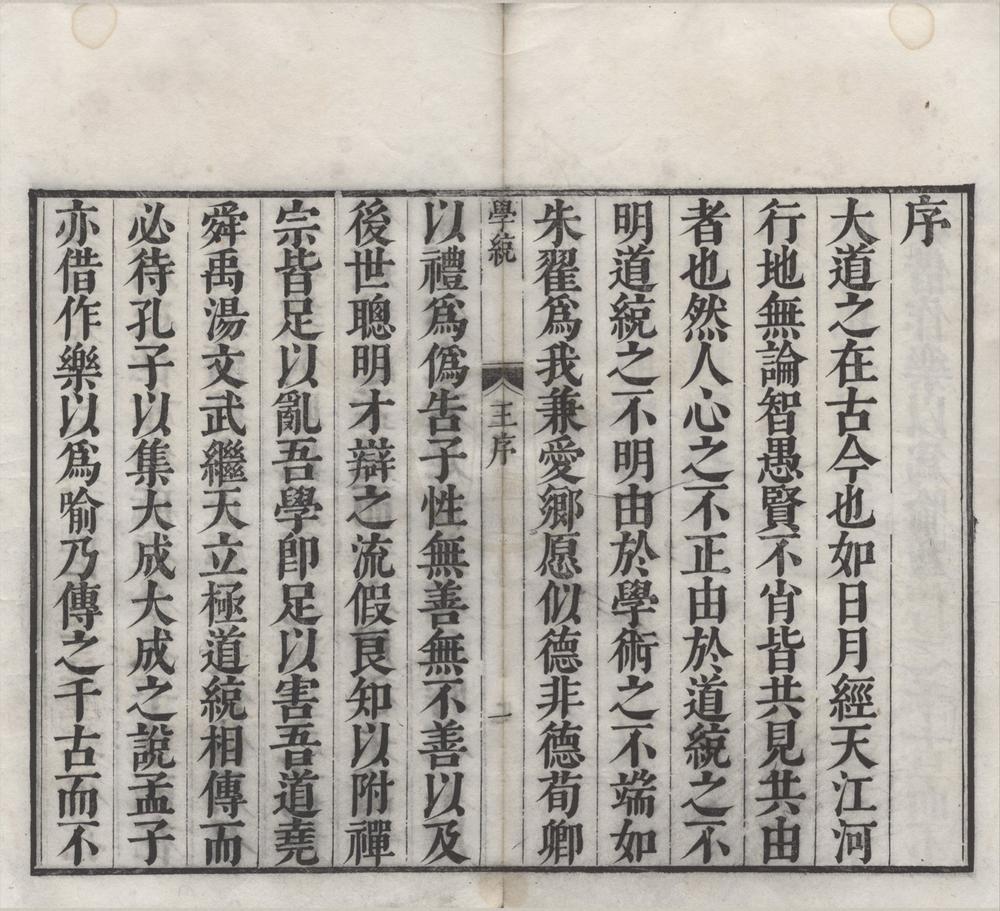 序
大道之在古今也如日月經天江河
行地無論智愚賢不肖皆共見共由
者也然人心之不正由於道統之不
明道統之不明由於學術之不端如
朱翟爲我兼愛鄉愿似德非德荀卿
學統 王序 一
以禮爲僞告子性無善無不善以及
後世聰明才辯之流假良知以附禪
宗皆足以亂吾學卽足以害吾道堯
舜禹湯文武繼天立極道統相傳而
必待孔子以集大成大成之說孟子
亦借作樂以爲喻乃傳之千古而不